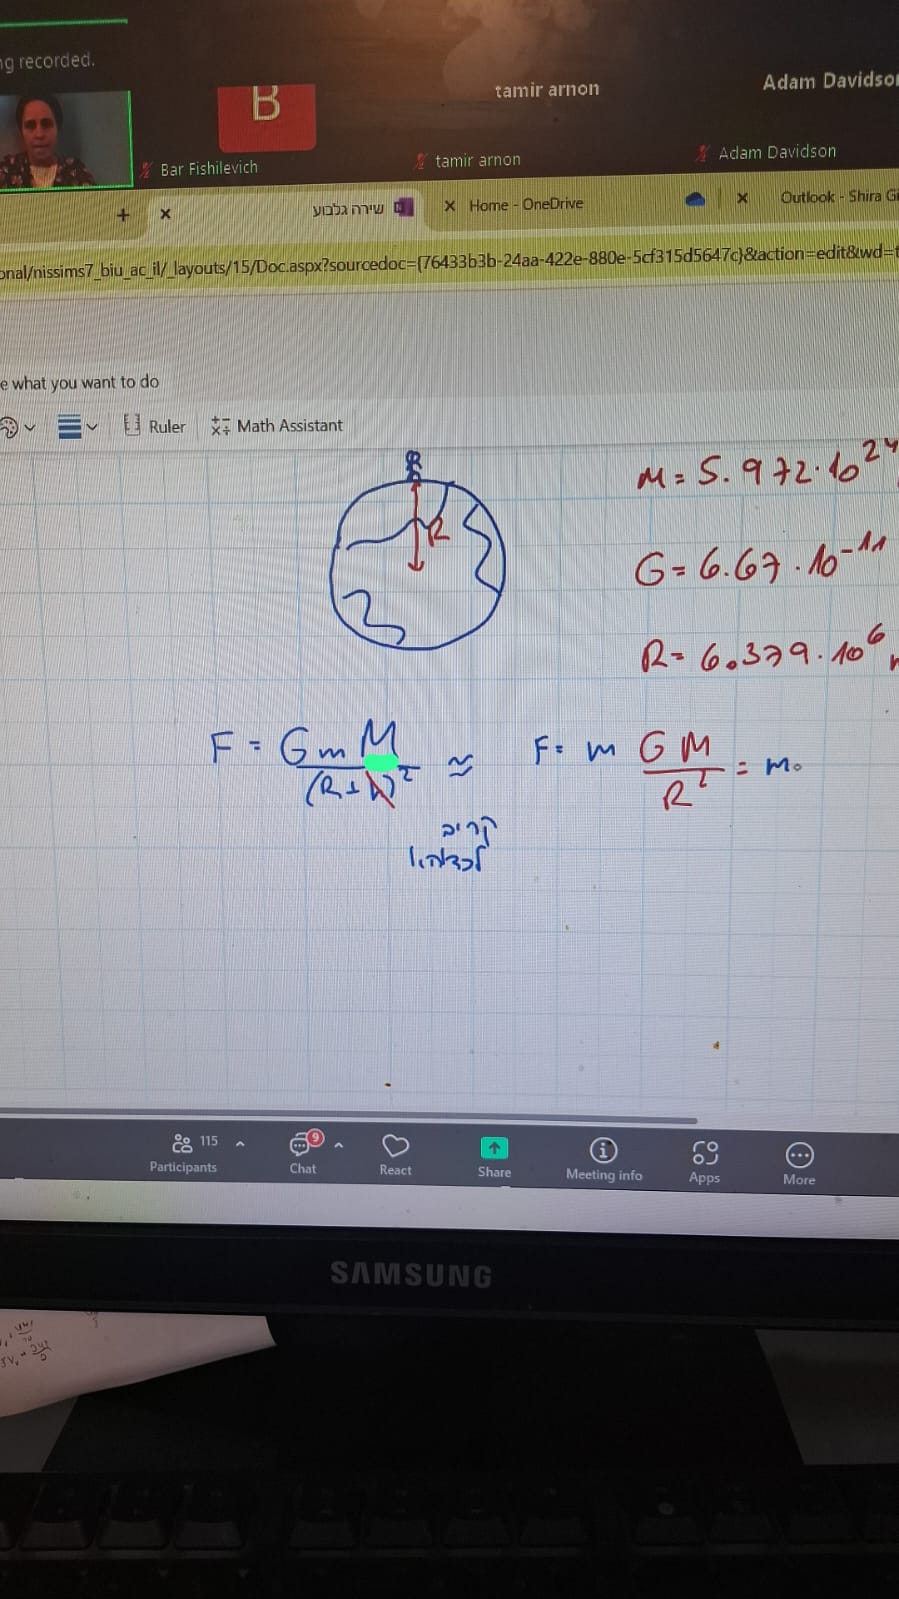 ng recorded.
B
tamir arnon
Adam Davidso
Bar Fishilevich
tamir arnon
Adam Davidson
+ × שירה גלבוע × Home - OneDrive × Outlook - Shira Gi
onal/nissims7_biu_ac_il/_layouts/15/Doc.aspx?sourcedoc={76433b3b-24aa-422e-880e-5cf315d5647c}&action=edit&wd=t
e what you want to do
Ruler Math Assistant
R
M = 5.972·10²⁴
G = 6.67·10⁻¹¹
R = 6.379·10⁶
F = GmM/(R+h)² ≈ F = m GM/R² = m
קרוב
115 9
Participants Chat React Share Meeting info Apps More
SAMSUNG